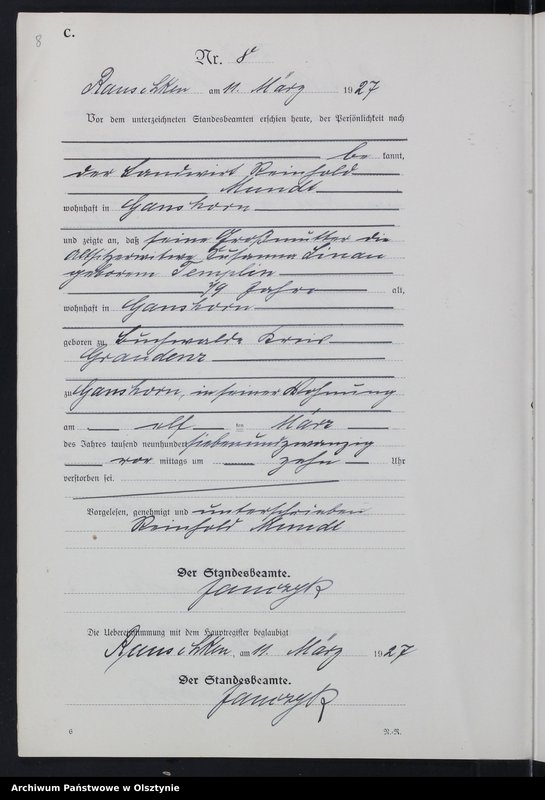 8
C.
Nr. 8
Rauschken am 11. März 1927
Vor dem unterzeichneten Standesbeamten erschien heute, der Persönlichkeit nach
be kannt,
der Landwirt Reinhold
Mundt
wohnhaft in Ganshorn
und zeigte an, daß seine Großmutter die
Altsitzerwitwe Susanna
geborene Templin
79 Jahre alt,
wohnhaft in Ganshorn
geboren zu Buchwalde Kreis
Graudenz
zu Ganshorn, in seiner Wohnung
am elf ten März
des Jahres tausend neunhundert siebenundzwanzig
vor mittags um zehn Uhr
verstorben sei.
Vorgelesen, genehmigt und unterschrieben
Reinhold Mundt
Der Standesbeamte.
Janczyk
Die Uebereinstimmung mit dem Hauptregister beglaubigt
Rauschken, am 11. März 1927
Der Standesbeamte.
Janczyk
6 N.-R.
Archiwum Państwowe w Olsztynie